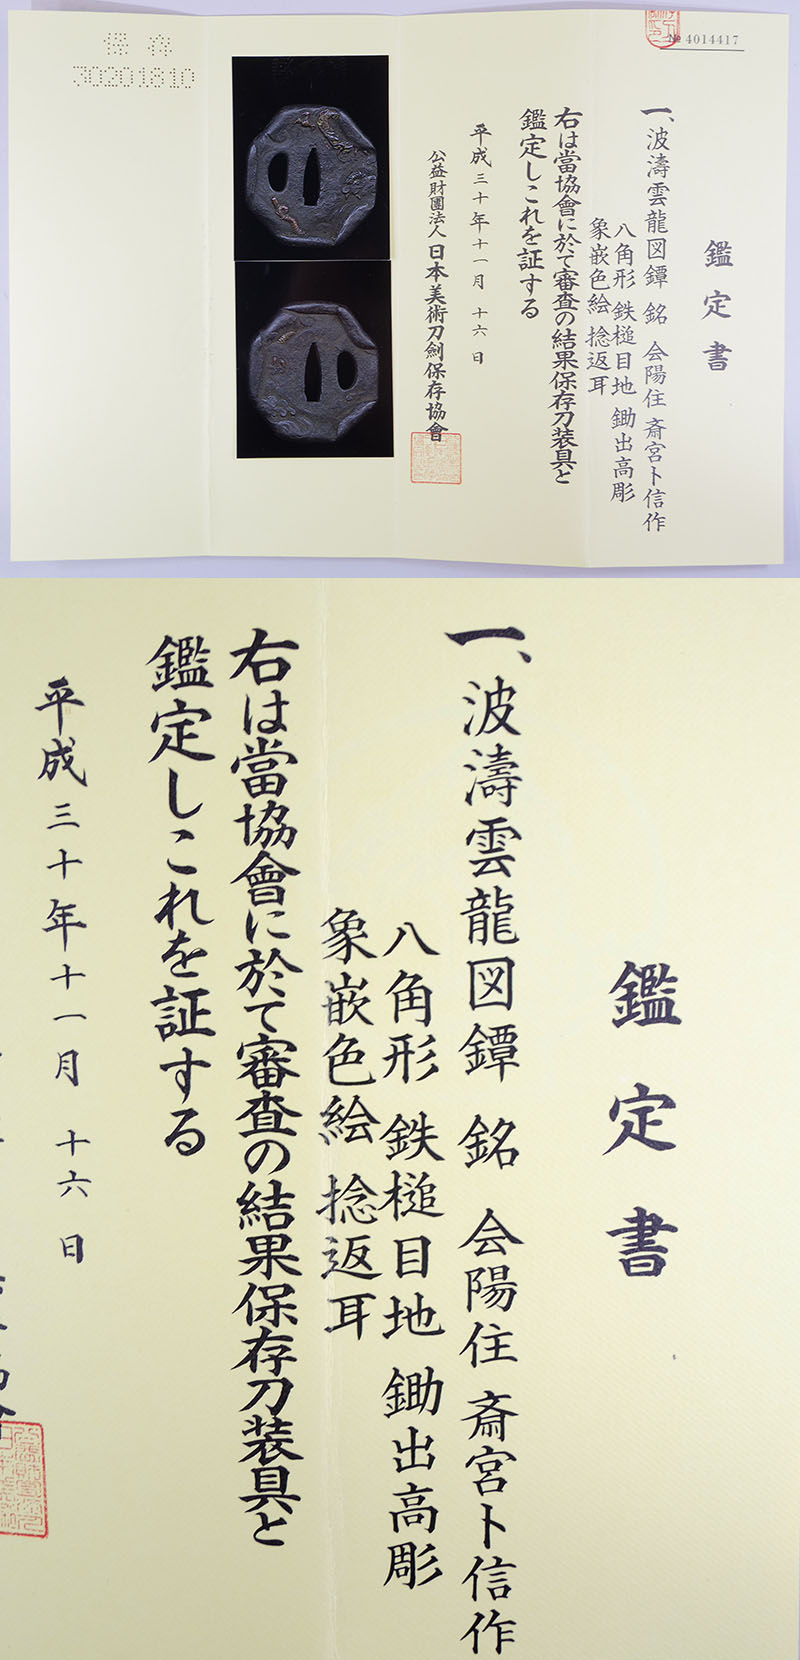 鑑定書
№ 4014417
一、波濤雲龍図鐔 銘 会陽住 斎宮卜信作
八角形 鉄槌目地 鋤出高彫
象嵌色絵 捻返耳
右は當協會に於て審査の結果保存刀装具と
鑑定しこれを証する
平成三十年十一月 十六 日
公益財團法人 日本美術刀劍保存協會
保存
30201810
鑑定書
一、波濤雲龍図鐔 銘 会陽住 斎宮卜信作
八角形 鉄槌目地 鋤出高彫
象嵌色絵 捻返耳
右は當協會に於て審査の結果保存刀装具と
鑑定しこれを証する
平成三十年十一月 十六 日